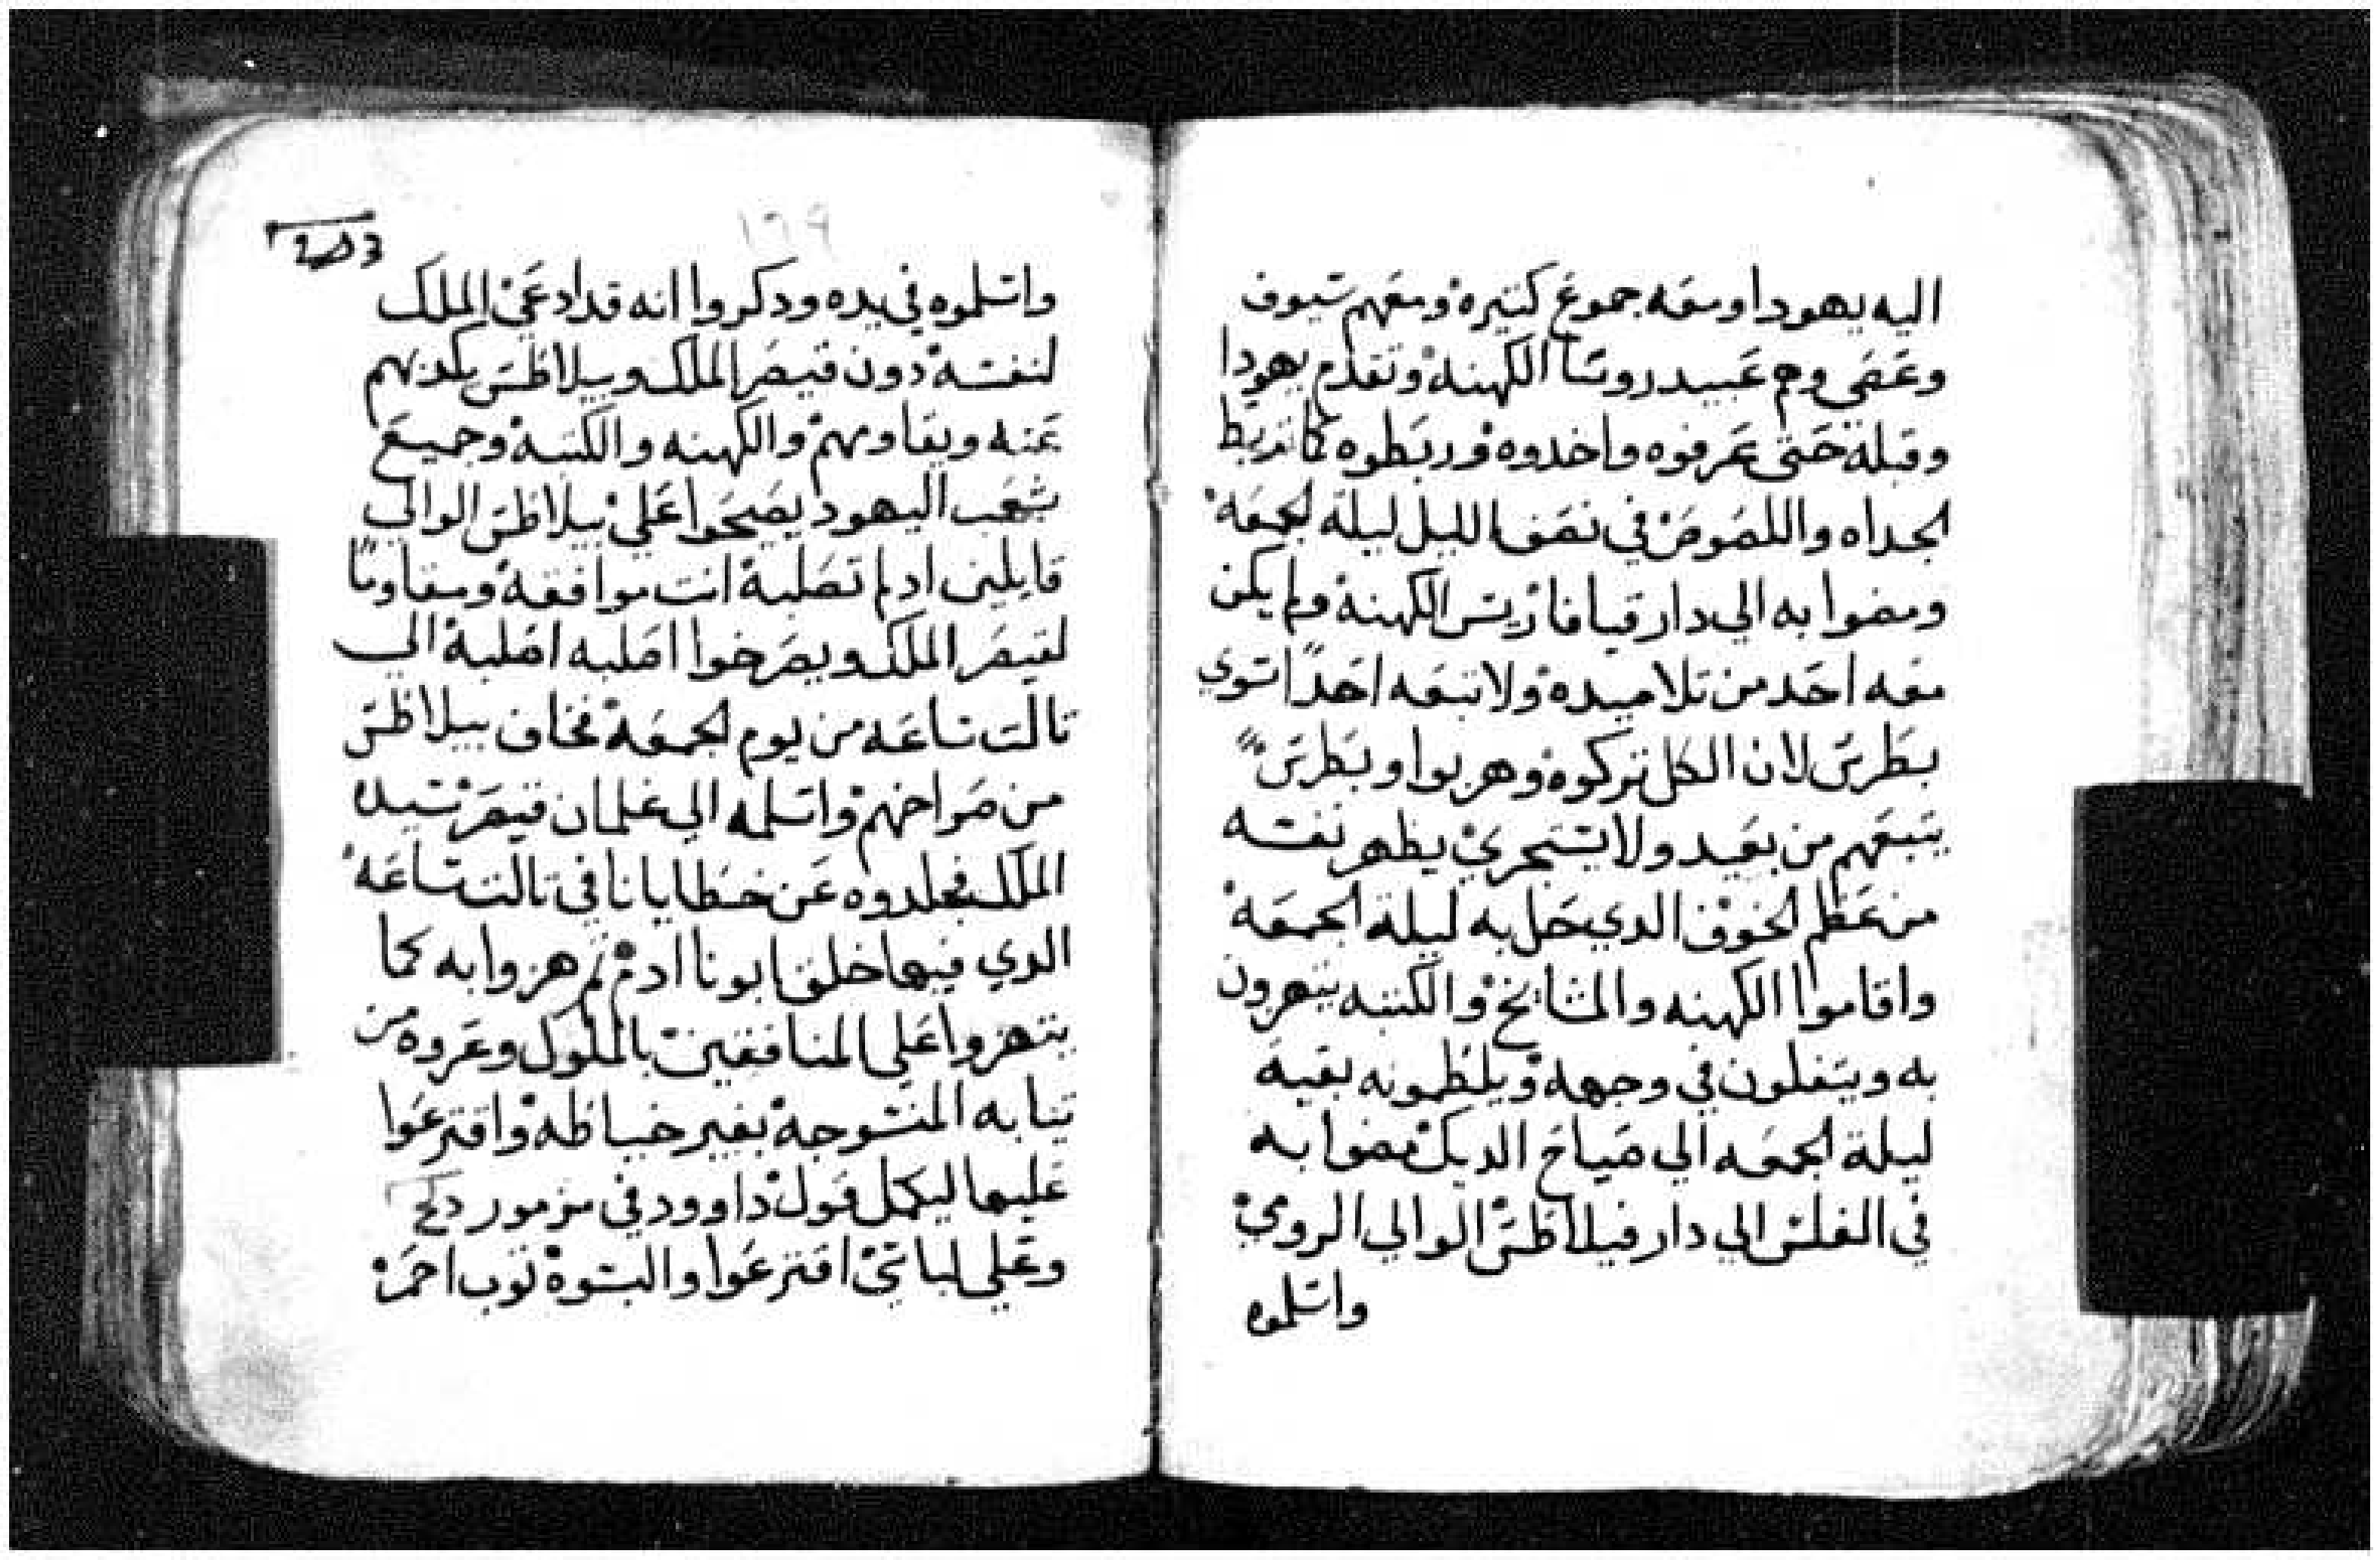 اليه يهودا ومعه جموع كتيره ومعهم سيوف
وعصي وهم عبيد روسا الكهنه وتقدم يهودا
وقبله حتي عرفوه واخدوه وربطوه كما تربط
الجداه واللصوص في نصف الليل ليلة الجمعه
ومضوا به الي دار قيافا ريس الكهنه ولم يكن
معه احد من تلاميده ولا تبعه احدا سوي
بطرس لان الكل تركوه وهربوا وبطرس
يتبعهم من بعيد ولا يستجري يظهر نفسه
من عظم الخوف الدي حل به ليلة الجمعه
واقاموا الكهنه والمشايخ والكتبه يتهرون
به ويتفلون في وجهه ويلطمونه بقية
ليلة الجمعه الي صياح الديك مضوا به
في الغلس الي دار فيلاطس الوالي الرومي
واسلموه
١٦٩
واسلموه في يده ودكروا انه قد ادعي الملك
لنفسه دون قيصر الملك وبيلاطس يكدبهم
عنه ويقاومهم والكهنه والكتبه وجميع
شعب اليهود يصيحوا علي بيلاطس الوالي
قايلين ادلم تصلبه انت موافقه ومقاوما
لقيصر الملك ويصرخوا اصلبه اصلبه الي
تالت ساعه من يوم الجمعه فخاف بيلاطس
من صراخهم واسلمه الي غلمان قيصر سيده
الملك فجلدوه عن خطايانا في تالت ساعه
الدي فيها خلق ابونا ادم تم هزوا به كما
يتهزوا علي المنافقين بالملوك وعروه من
تيابه المنسوجه بغير خياطه واقترعوا
عليها ليكمل قول داوود في مزمور
وعلي لباسي اقترعوا والبسوه توب احمر